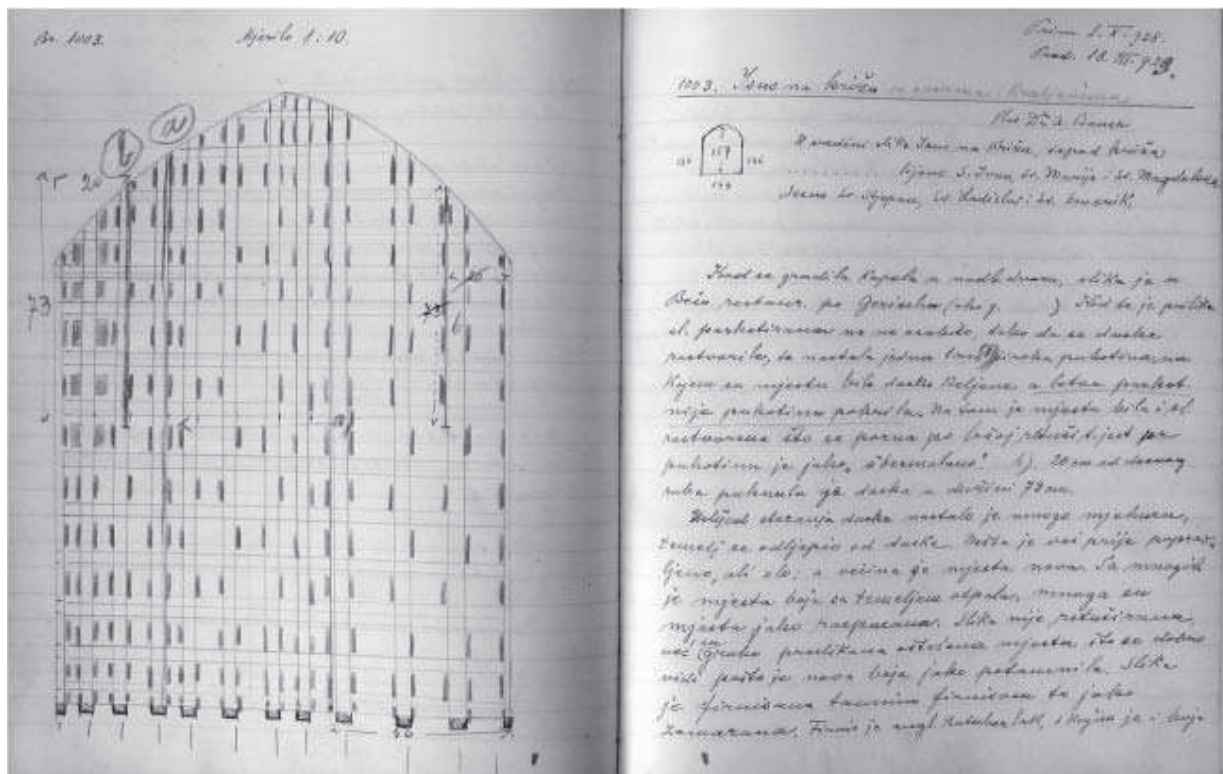 Br. 1003.
Mjerilo 1:10.
b
a
20
73
Prim. 2. X. 928.
Pred. 18. XII. 928.
1003. Isus na križu sa svecima i kraljevima
Vlas. DZ. Bauer
U sredini slike Isus na križu, ispod križa
157
lijevo S. Ivan, sv. Marija i sv. Magdalena,
desno sv. Stjepan, sv. Ladislav i sv. Emerik.
Kad se gradila kapela u nadb. dvoru, slika je u
Beču restaur. po Gerischu (oko g. ) Kod te je prilike
sl. parketirana no ne osobito, tako da se daske
rastvorile, te nastala jedna široka pukotina, na
kojem su mjestu bile daske keljene a letva parket
nije pukotinu pokrila. Na tom je mjestu bila i sl.
rastvorena što se pozna po lošoj retuši t. j. jest pr
pukotinu je jako "übermalano". b) 20 cm od desnog
ruba puknula je daska u dužini 73 cm.
Uslijed stezanja daske nastalo je mnogo mjehura,
temelj se odlijepio od daske. Nešto je već prije poprav-
ljeno, ali zlo; a većina je mjesta nova. Sa mnogih
je mjesta boja sa temeljem otpala, mnoga su
mjesta jako raspucana. Slika nije retuširana
već grubo preslikana oštećena mjesta, što se dobro
vidi pošto je nova boja jako potamnila. Slika
je firnisana tamnim firnisom te jako
zamazana. Firnis je engl. lak, s kojim je i boja